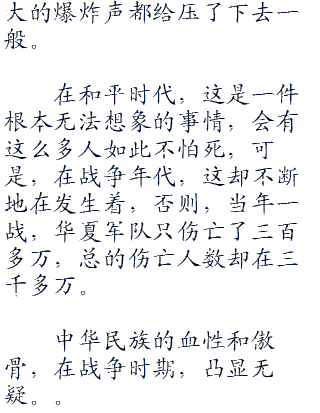 大的爆炸声都给压了下去一
般。
在和平时代，这是一件
根本无法想象的事情，会有
这么多人如此不怕死，可
是，在战争年代，这却不断
地在发生着，否则，当年一
战，华夏军队只伤亡了三百
多万，总的伤亡人数却在三
千多万。
中华民族的血性和傲
骨，在战争时期，凸显无
疑。。